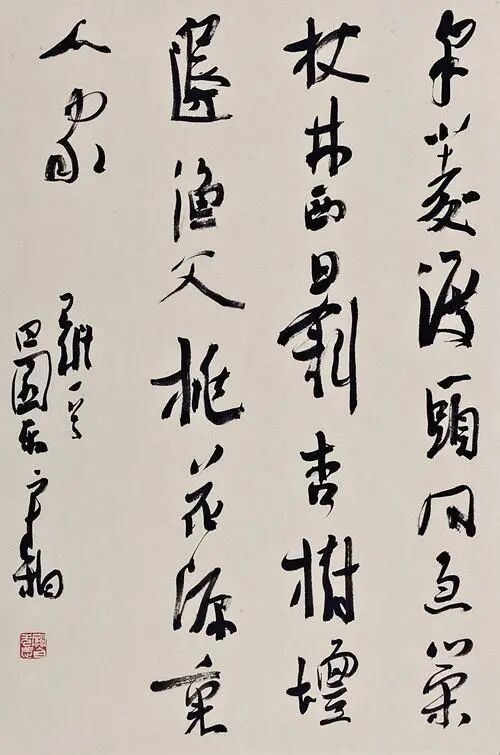 采菱渡頭風急策
杖林西日斜杏樹壇
邊漁父桃花源裏
人家
王維
田園樂